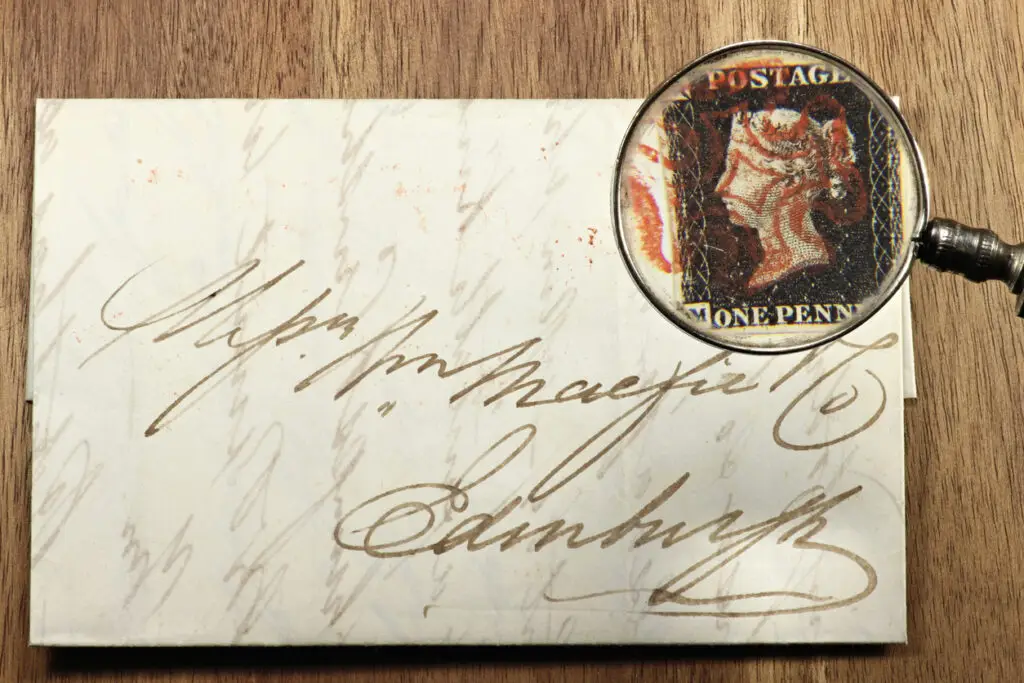 POSTAGE
M ONE PENN
Messrs Wm Macfie & Co
Edinburgh